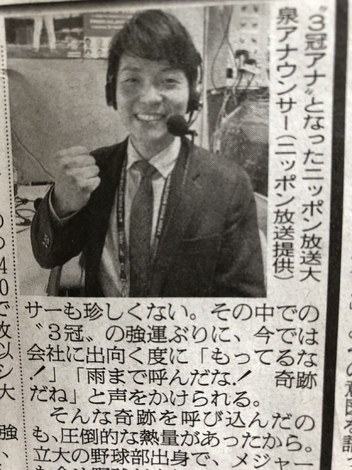 〝3冠アナ〟となったニッポン放送大
泉アナウンサー(ニッポン放送提供)
サーも珍しくない。その中での
〝3冠〟の強運ぶりに、今では
会社に出向く度に「もってるな
!」「雨まで呼んだな!　奇跡
だね」と声をかけられる。
　そんな奇跡を呼び込んだの
も、圧倒的な熱量があったから。
立大の野球部出身で、メジャー